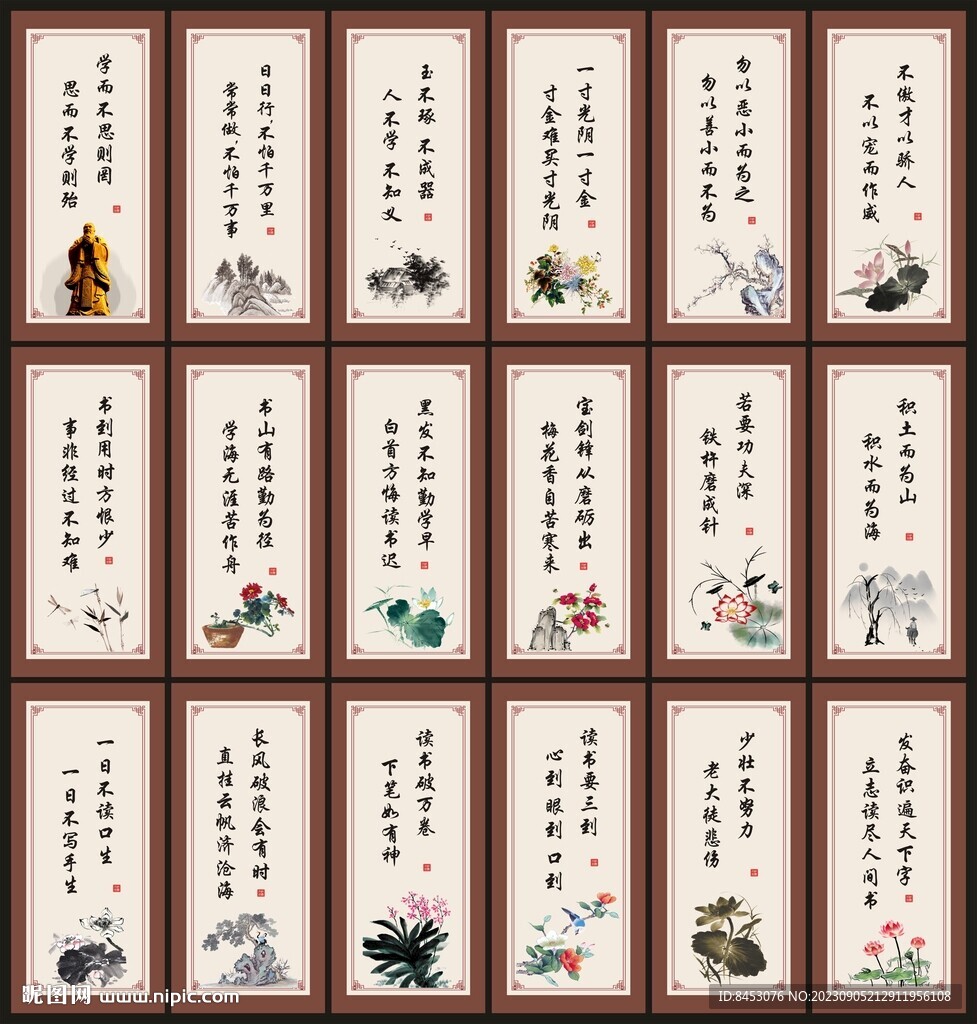 学而不思则罔
思而不学则殆
日日行,不怕千万里
常常做,不怕千万事
玉不琢 不成器
人不学 不知义
一寸光阴一寸金
寸金难买寸光阴
勿以恶小而为之
勿以善小而不为
不傲才以骄人
不以宠而作威
书到用时方恨少
事非经过不知难
书山有路勤为径
学海无涯苦作舟
黑发不知勤学早
白首方悔读书迟
宝剑锋从磨砺出
梅花香自苦寒来
若要功夫深
铁杵磨成针
积土而为山
积水而为海
一日不读口生
一日不写手生
长风破浪会有时
直挂云帆济沧海
读书破万卷
下笔如有神
读书要三到
心到 眼到 口到
少壮不努力
老大徒悲伤
发奋识遍天下字
立志读尽人间书
昵图网 www.nipic.com
ID:8453076 NO:20230905212911956108